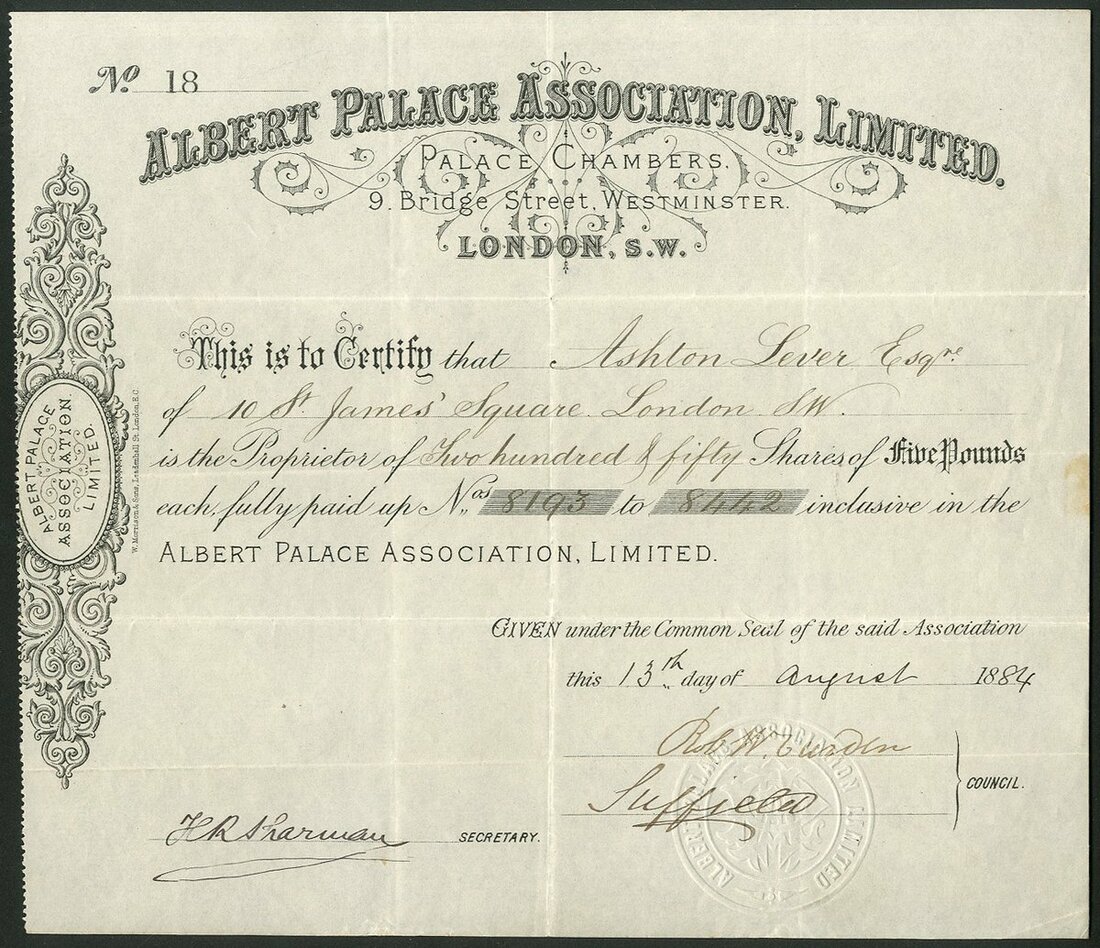 No. 18
ALBERT PALACE ASSOCIATION, LIMITED.
PALACE CHAMBERS.
9. Bridge Street, WESTMINSTER.
LONDON, S.W.
This is to Certify that Ashton Lever Esqre
of 10 St. James' Square. London. SW.
is the Proprietor of Two hundred & fifty Shares of Five Pounds
each, fully paid up Nos 8193 to 8442 inclusive in the
ALBERT PALACE ASSOCIATION, LIMITED.
GIVEN under the Common Seal of the said Association
this 13th day of August 1884
Suffield
COUNCIL.
H R Sharman SECRETARY.
ALBERT PALACE
ASSOCIATION
LIMITED.
W. Morrison & Sons, Leadenhall St. London, E.C.
ALBERT PALACE ASSOCIATION LIMITED